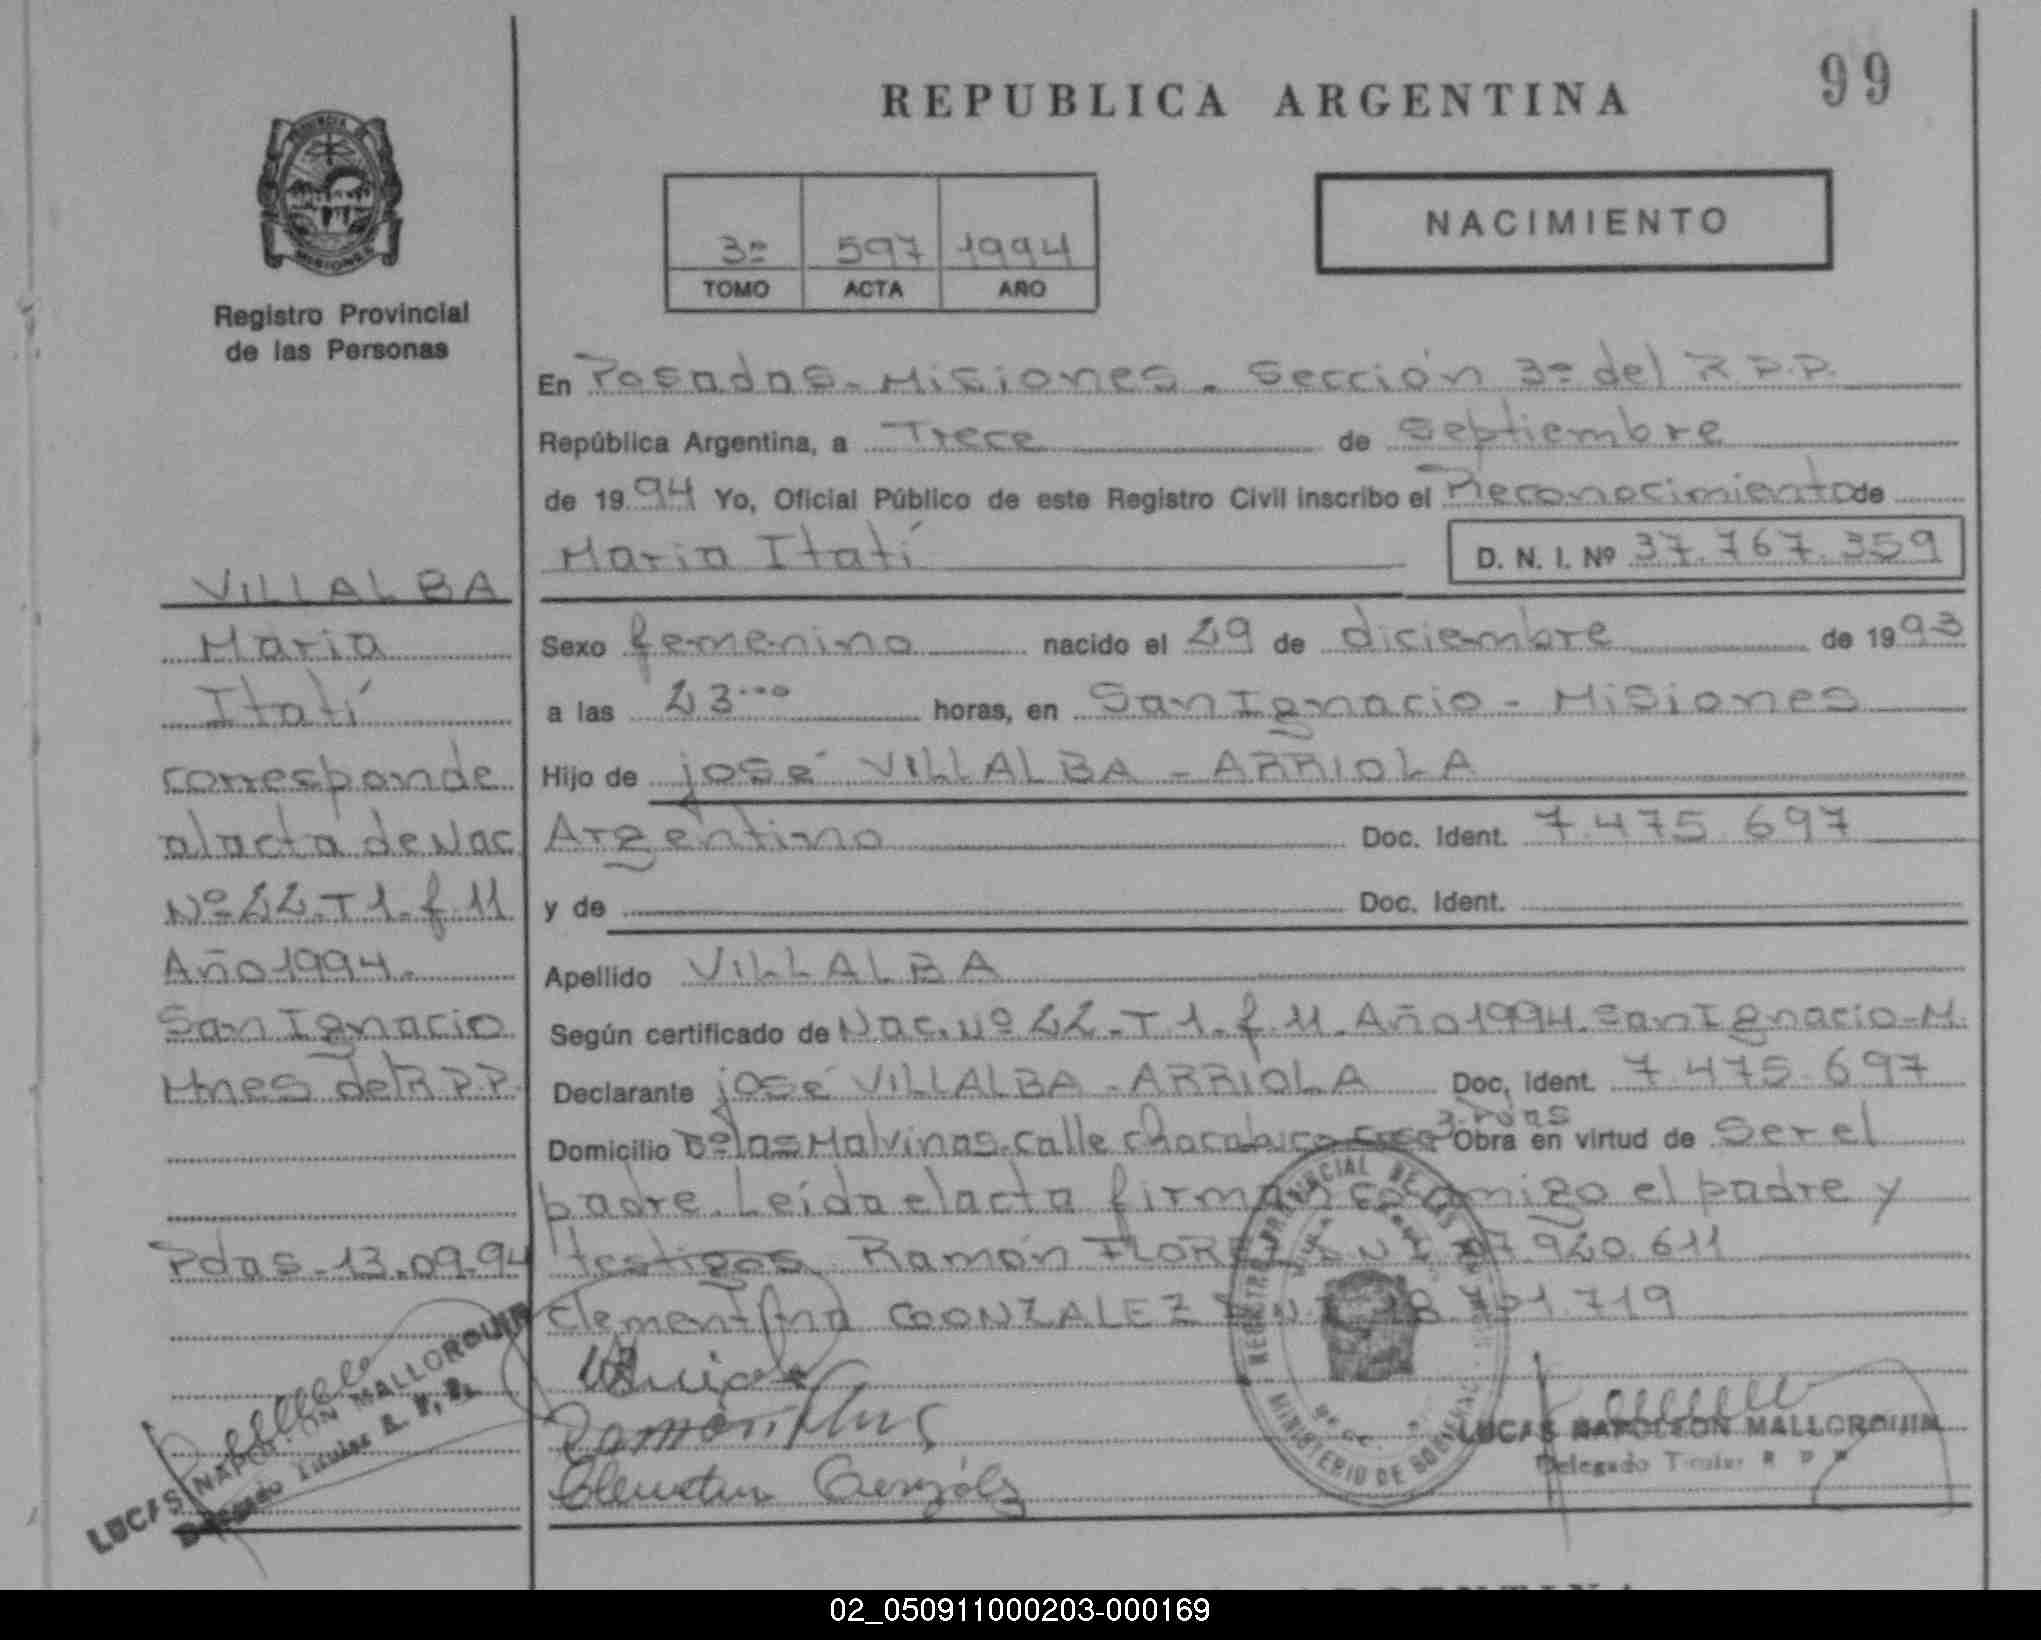 99
REPUBLICA ARGENTINA
PROVINCIA DE
MISIONES
Registro Provincial
de las Personas
3º 597 1994
TOMO ACTA AÑO
NACIMIENTO
En Posadas - Misiones - Sección 3º del R.P.P.
República Argentina, a Trece de Septiembre
de 1994 Yo, Oficial Público de este Registro Civil inscribo el Reconocimiento de
Maria Itatí D. N. I. Nº 37.767.359
Sexo femenino nacido el 29 de diciembre de 1993
a las 23 horas, en San Ignacio - Misiones
Hijo de josé VILLALBA - ARRIOLA
Argentino Doc. Ident. 7.475.697
y de Doc. Ident.
Apellido VILLALBA
Según certificado de Nac. Nº 22 - T 1 - f. 11. Año 1994. San Ignacio - M.
Declarante josé VILLALBA - ARRIOLA Doc. Ident. 7.475.697
Domicilio Bº las Malvinas. calle Chacabuco 3 - Pdas Obra en virtud de Ser el
padre. Leída el acta firman conmigo el padre y
testigos Ramón FLORES D N I 940.611
Clementina GONZALEZ D.N.I. 719
VILLALBA
Maria
Itatí
corresponde
al acta de Nac
Nº 22 - T 1. f. 11
Año 1994.
San Ignacio
Mnes del R.P.P.
Pdas - 13.09.94
LUCAS NAPOLEON MALLORQUIN
Delegado Titular R. P. P.
Ramón
Gonzáles
REGISTRO PROVINCIAL DE LAS PERSONAS
MINISTERIO DE GOBIERNO
LUCAS NAPOLEON MALLORQUIN
Delegado Titular R P P
02_050911000203-000169